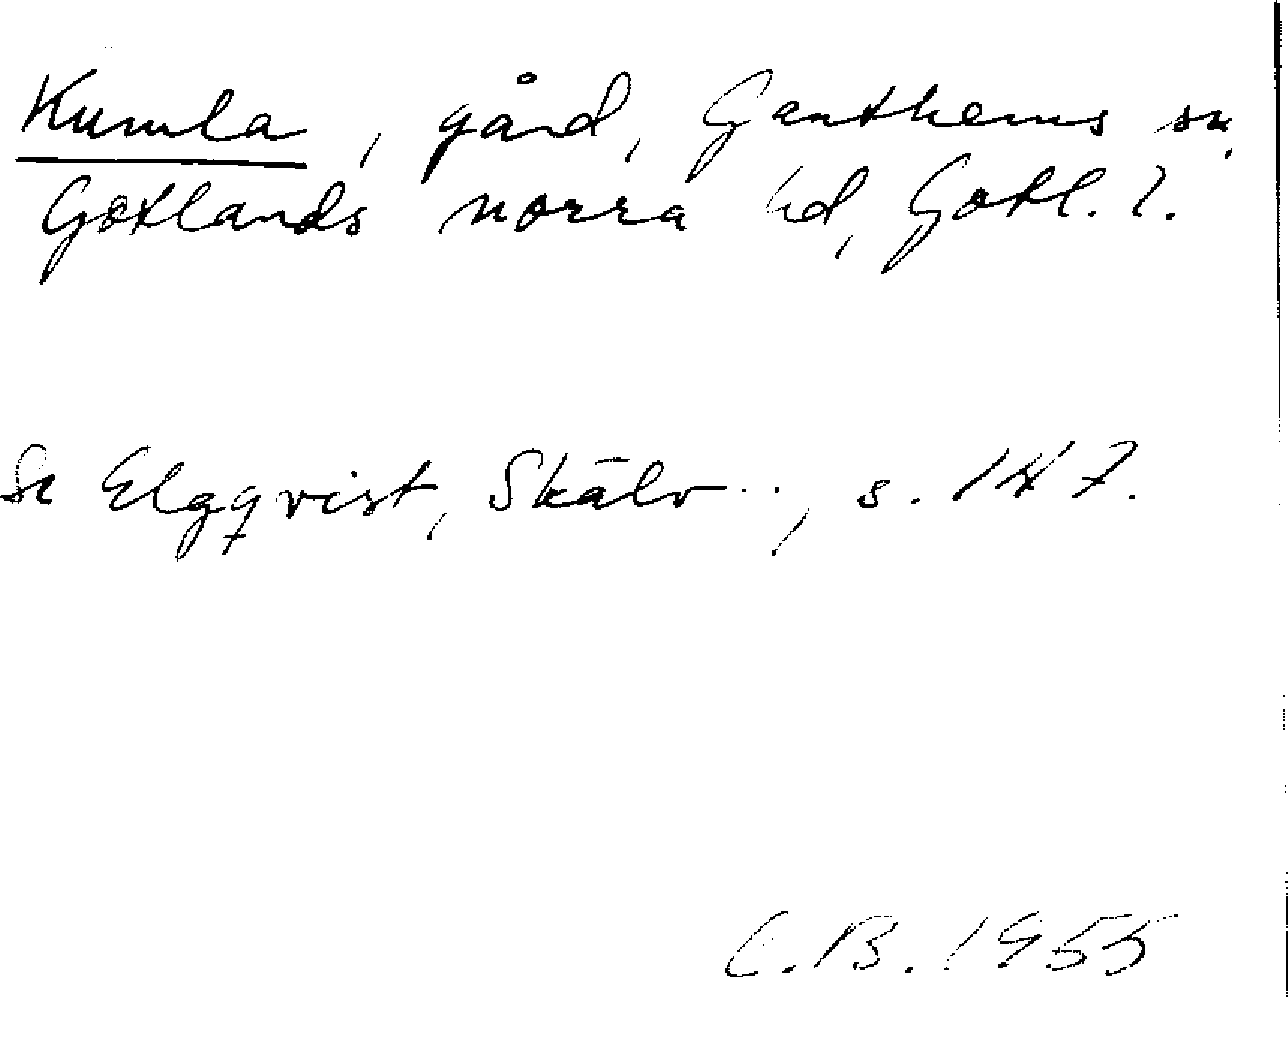 Kumla, gård, Ganthems sn,
Gotlands norra hd, Gotl. l.
Se Elgqvist, Skälv..., s. 147.
C.B. 1955